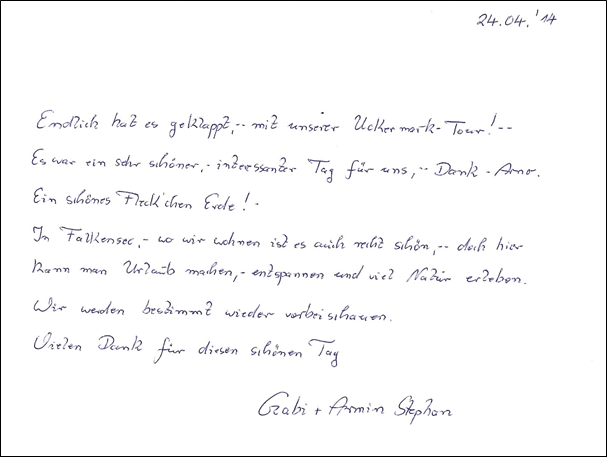 24.04.'14
Endlich hat es geklappt,-- mit unserer Uckermark-Tour!--
Es war ein sehr schöner,- interessanter Tag für uns,-- Dank - Arno.
Ein schönes Fleck'chen Erde!-
In Falkensee,- wo wir wohnen ist es auch recht schön,-- doch hier
kann man Urlaub machen,- entspannen und viel Natur erleben.
Wir werden bestimmt wieder vorbeischauen.
Vielen Dank für diesen schönen Tag
Gabi + Armin Stephan